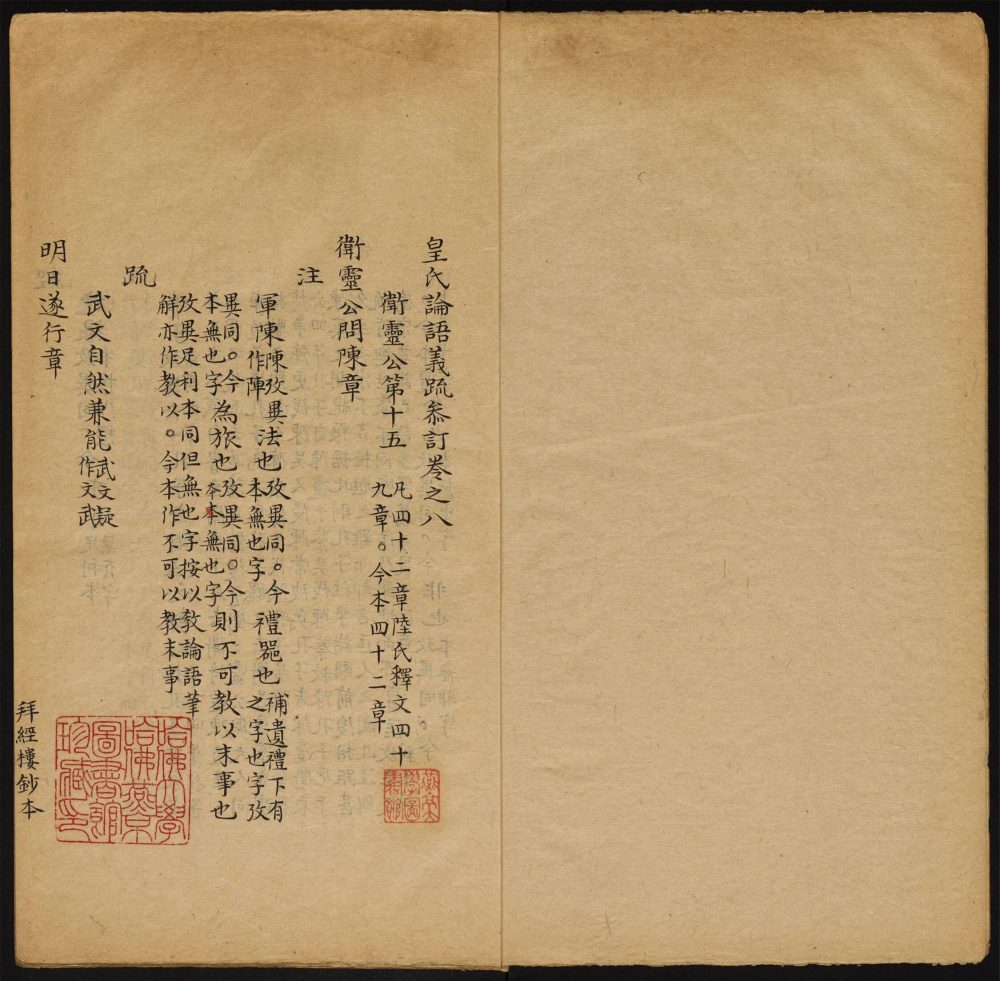 皇氏論語義疏叅訂卷之八
衛靈公第十五 凡四十二章陸氏釋文四十
九章。今本四十二章
衛靈公問陳章
注
軍陳陳攷異作陣法也攷異同。今本無也字禮器也補遺禮下有之字也字攷
異同。今本無也字為旅也攷異同。今本無也字則不可教以末事也
攷異足利本同但無也字按以教論語筆
解亦作教以。今本作不可以教末事
疏
武文自然兼能武文疑作文武
明日遂行章
拜經樓鈔本
哈佛大學
哈佛燕京
圖書館
珍藏印